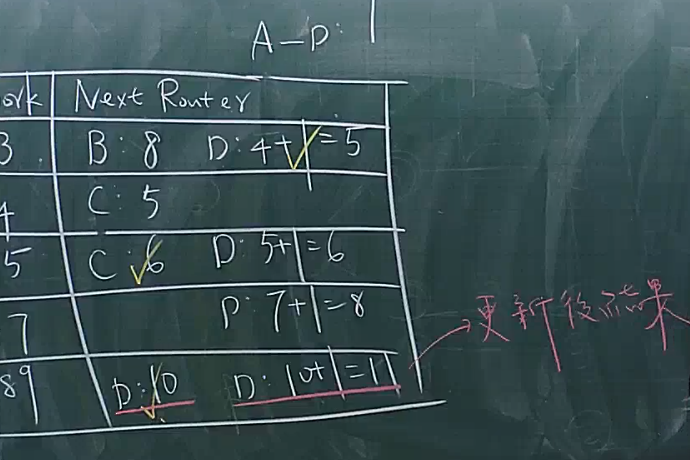 A-D:
ork Next Router
3 B: 8 D: 4+1=5
4 C: 5
5 C: 6 D: 5+1=6
7 D: 7+1=8
89 D: 10 D: 10+1=11
更新後結果